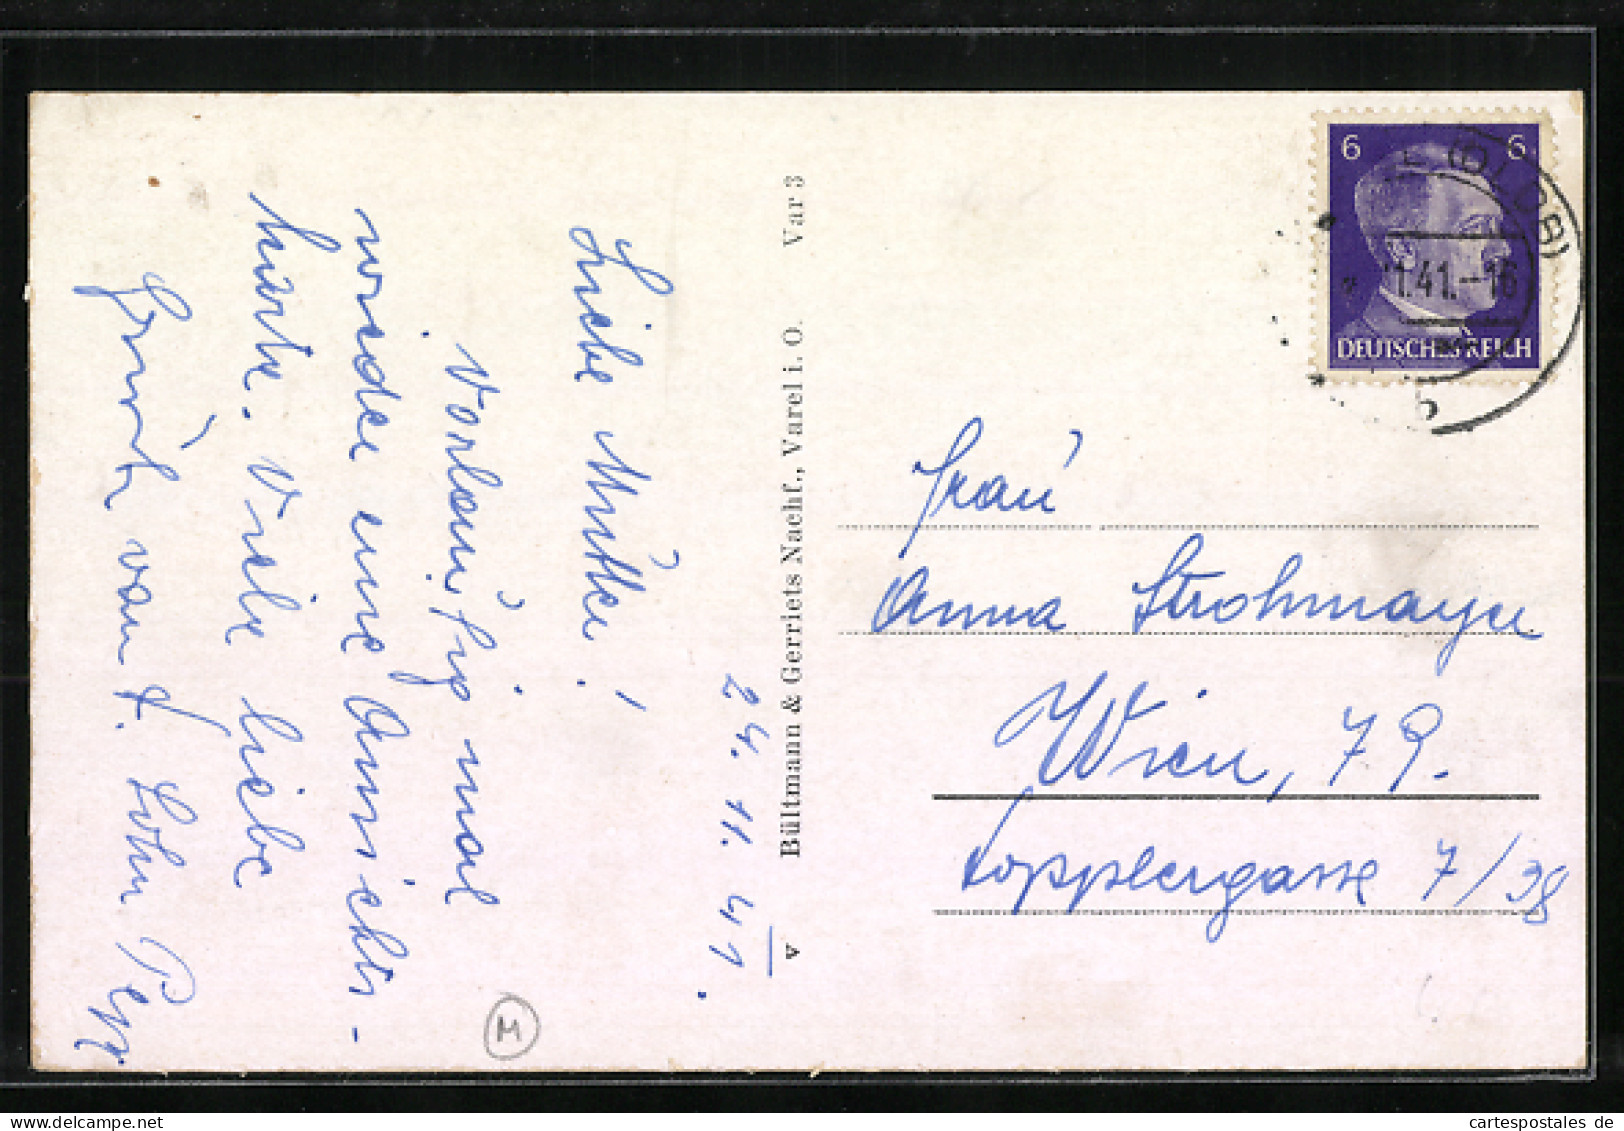 24. 11. 41.
Liebe Mutter!
Vorläufig mal
wieder eine Ansichts-
karte. Viele liebe
von d. Sohn Pepp
M
Bültmann & Gerriets Nachf., Varel i. O. Var 3
v
6 6
DEUTSCHES REICH
11.41.-16
b
Frau
Anna Strohmayer
Wien, 79.
Kopplergasse 7/38
cartespostales de